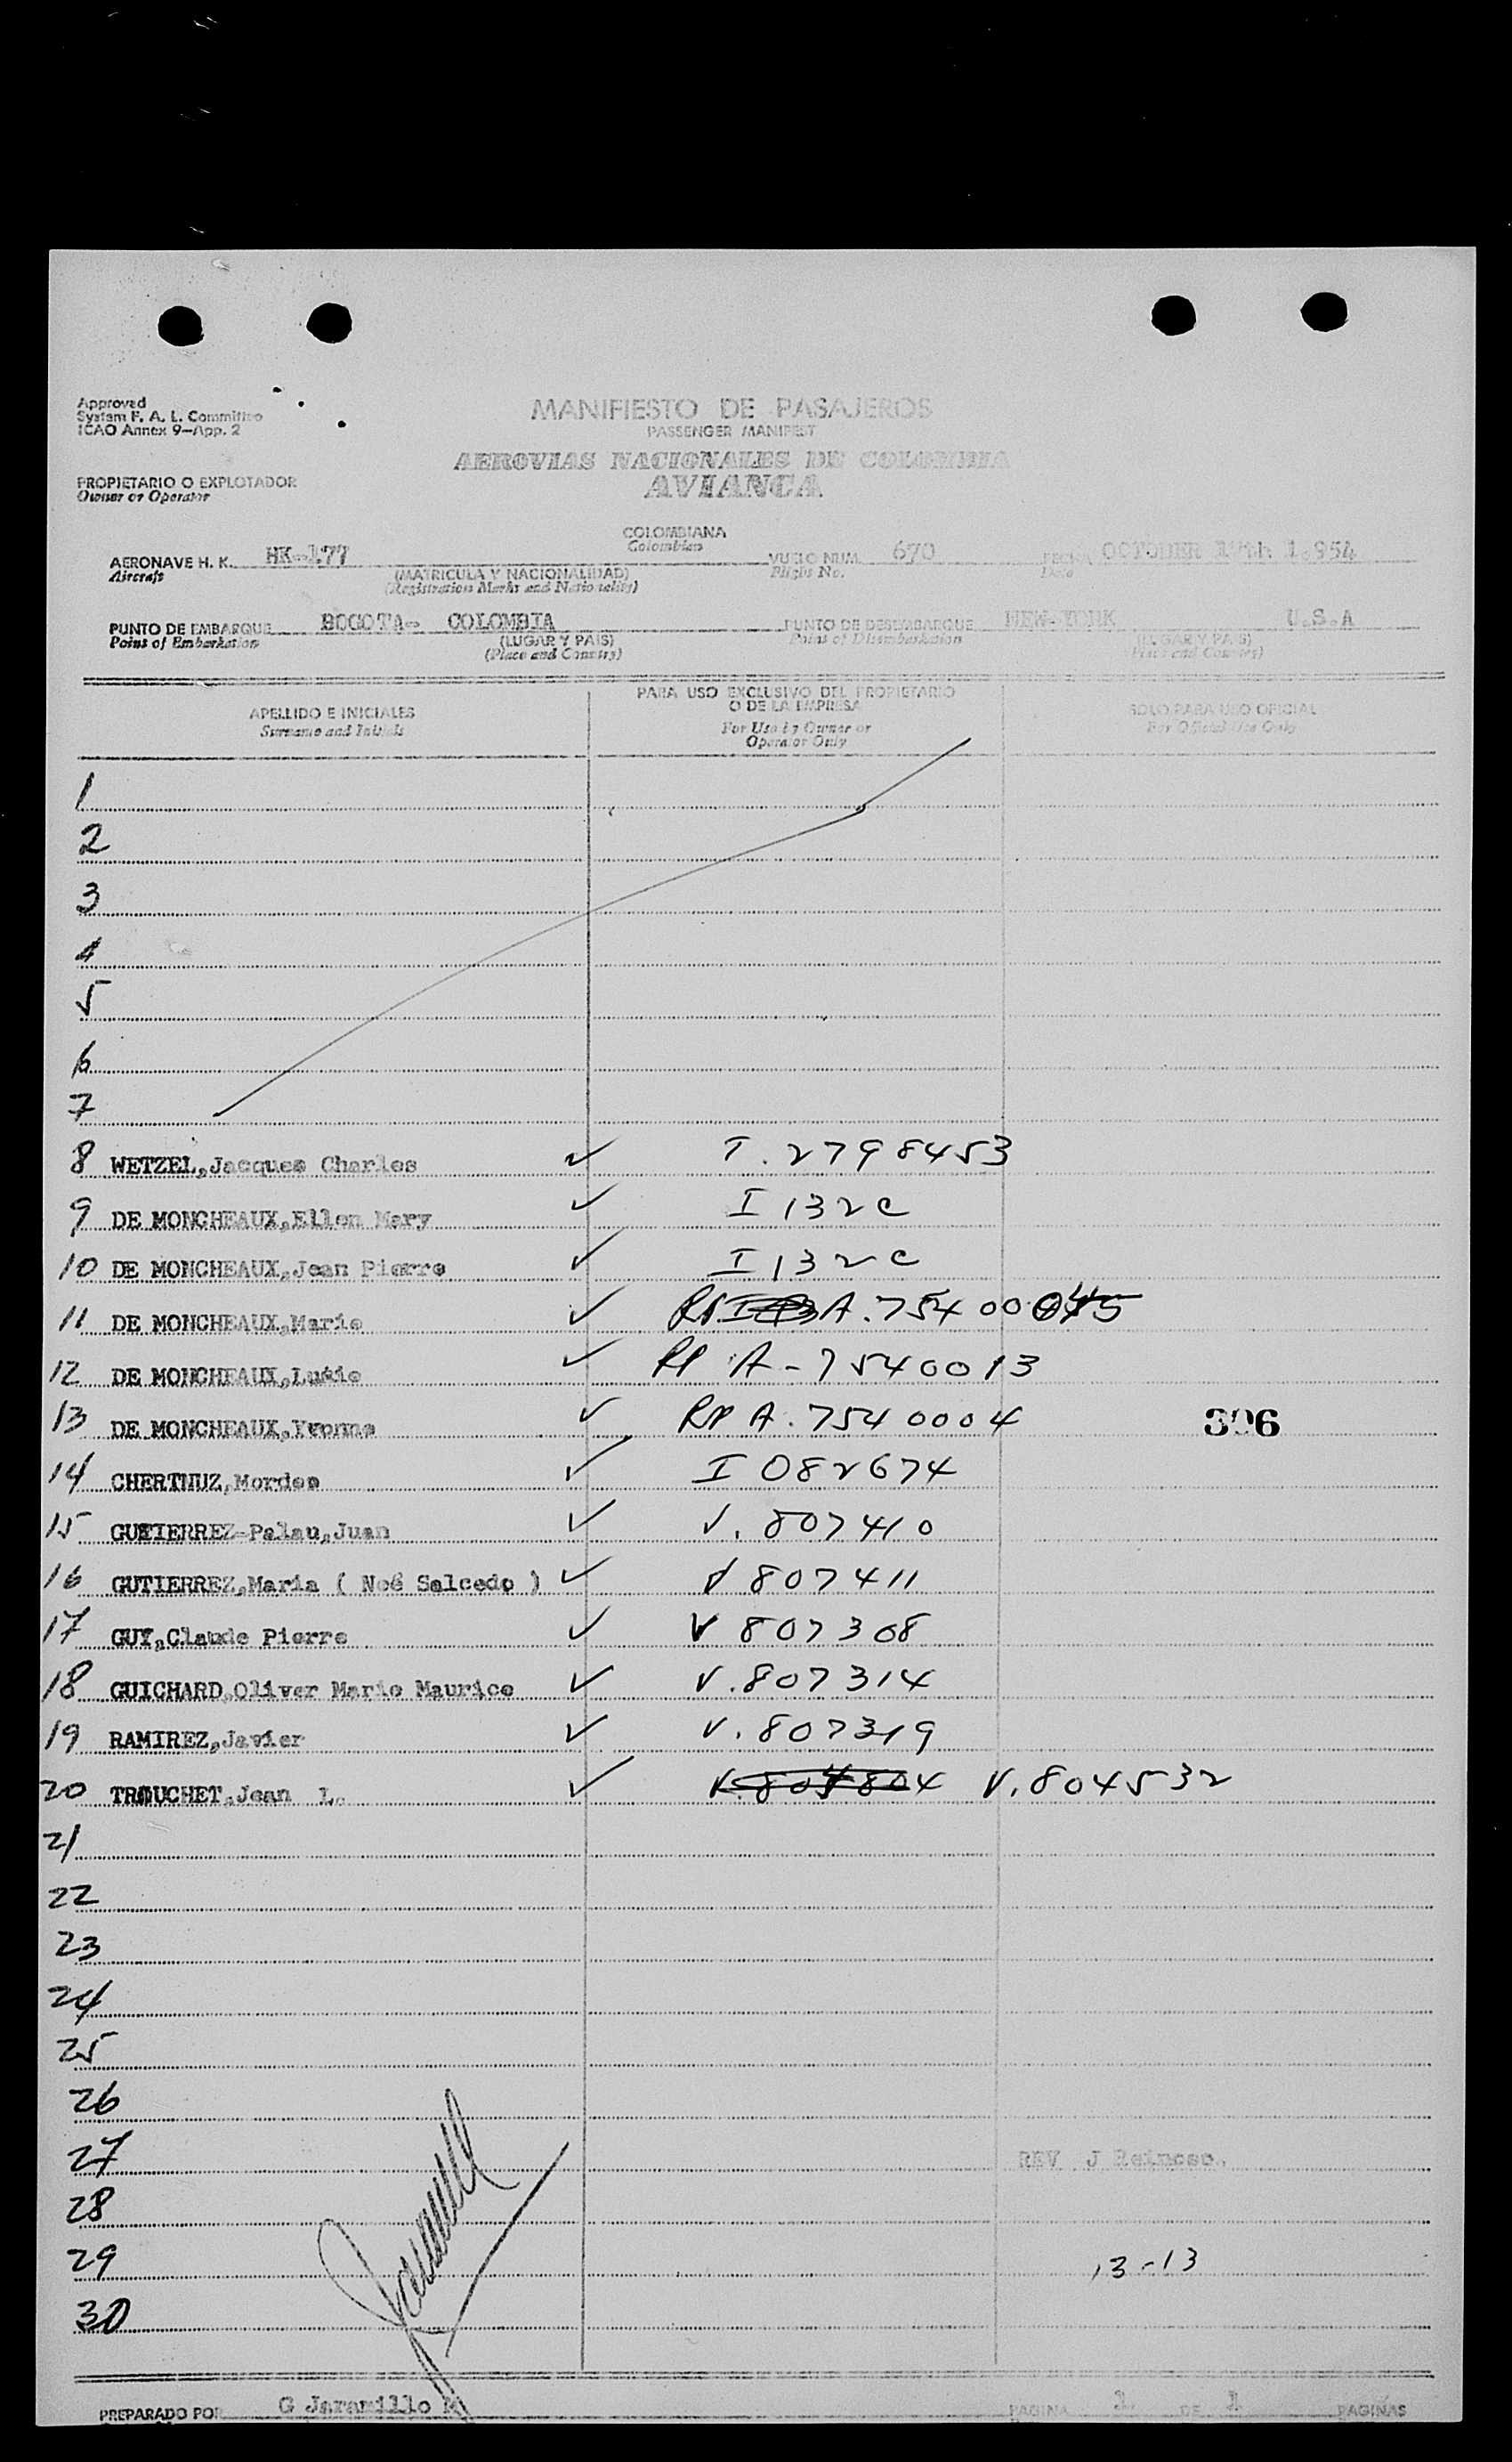 Approved
System F. A. L. Committee
ICAO Annex 9-App. 2
MANIFIESTO DE PASAJEROS
PASSENGER MANIFEST
AEROVIAS NACIONALES DE COLOMBIA
AVIANCA
PROPIETARIO O EXPLOTADOR
Owner or Operator
COLOMBIANA
Colombian
AERONAVE H. K. HK-177 VUELO NUM. 670 FECHA OCTOBER 1.954
Aircraft (MATRICULA Y NACIONALIDAD) Flight No. Date
(Registration Marks and Nationality)
PUNTO DE EMBARQUE BOGOTA- COLOMBIA PUNTO DE DESEMBARQUE NEW-YORK U.S.A
Point of Embarkation (LUGAR Y PAIS) Point of Disembarkation (LUGAR Y PAIS)
(Place and Country) (Place and Country)
APELLIDO E INICIALES PARA USO EXCLUSIVO DEL PROPIETARIO O DE LA EMPRESA SOLO PARA USO OFICIAL
Surname and Initials For Use by Owner or Operator Only For Official Use Only
1
2
3
4
5
6
7
8 WETZEL,Jacques Charles I. 2798453
9 DE MONCHEAUX,Ellen Mary I 132C
10 DE MONCHEAUX,Jean Pierre I 132C
11 DE MONCHEAUX,Marie A. 75400
12 DE MONCHEAUX, RP A-7540013
13 DE MONCHEAUX,Yvonne RP A. 7540004 396
14 Mordes I 082674
15 GUTIERREZ-Palau,Juan V. 807410
16 GUTIERREZ,Maria ( Noé Salcedo ) V 807411
17 GUY,Claude Pierre V 807308
18 GUICHARD,Oliver Marie Maurice V. 807314
19 RAMIREZ,Javier V. 807319
20 TROUCHET,Jean L. V. 804532
21
22
23
24
25
26
27 REV J Reinoso.
28
29 13-13
30
PREPARADO POR G Jaramillo M PAGINA 1 DE 1 PAGINAS